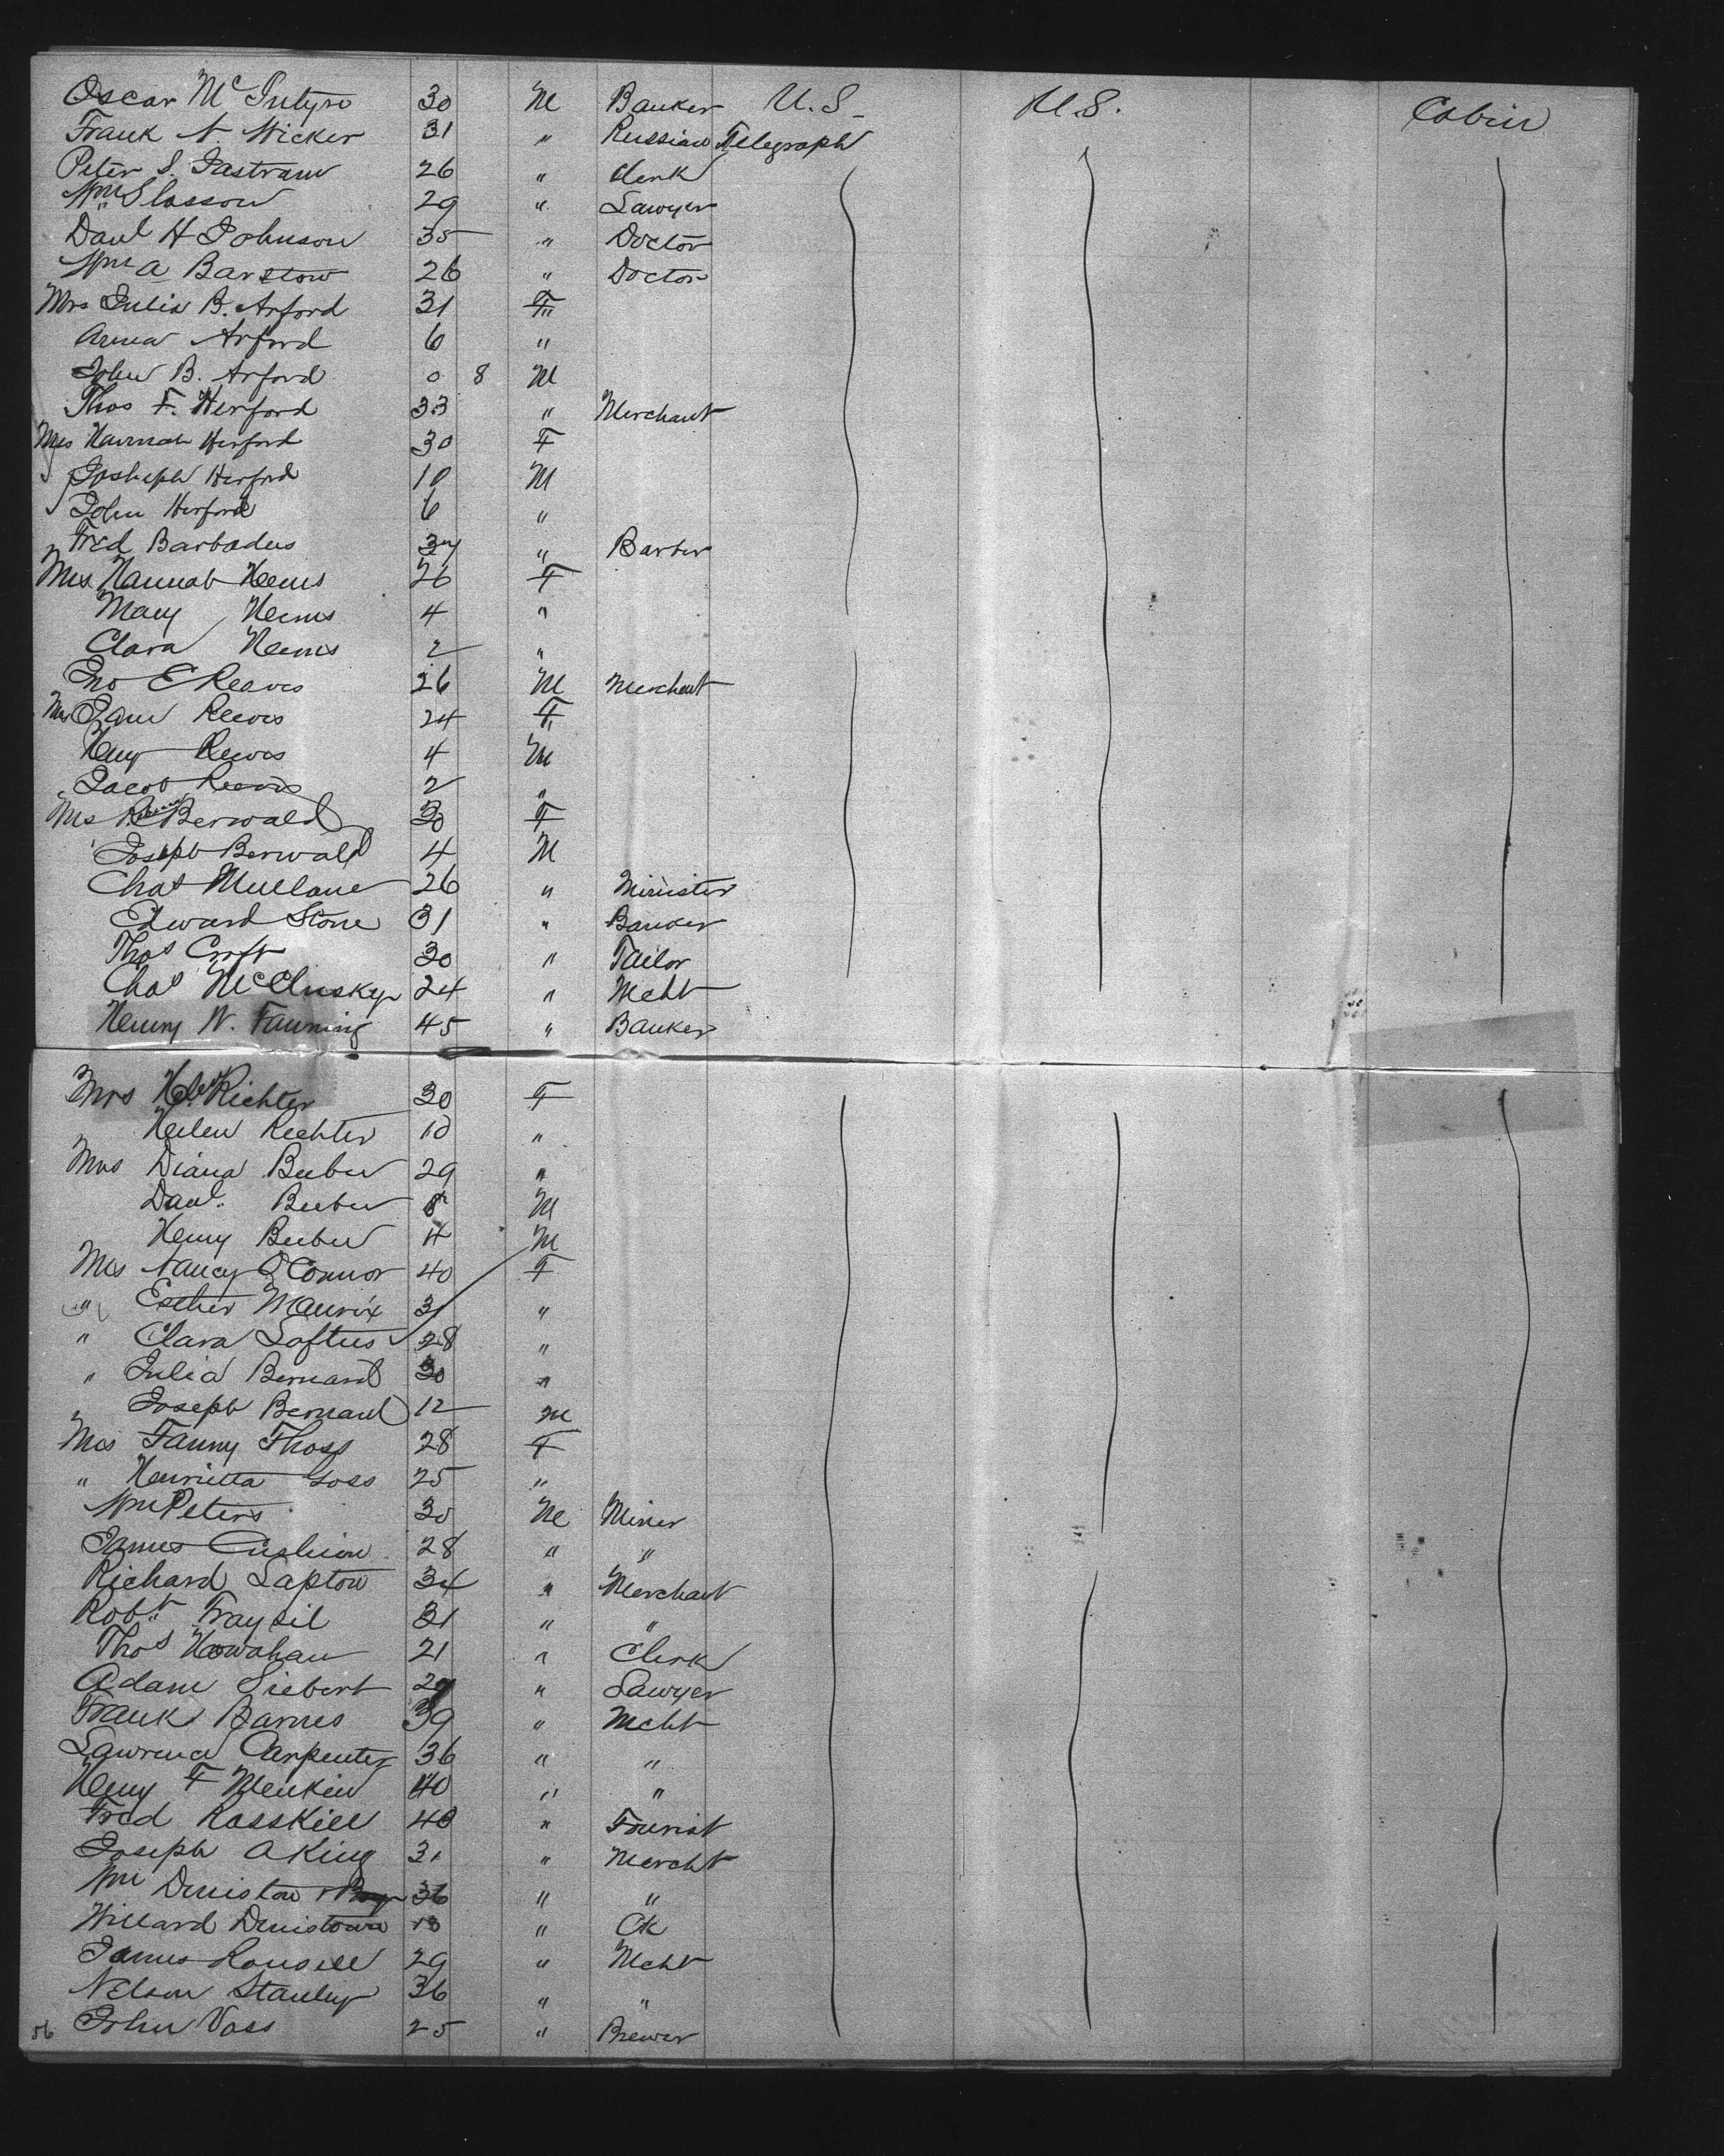 Oscar McIntyre 30 M Banker U.S. U.S. Cabin
Frank N. Wicker 31 " Russian Telegraph
Peter S. Jastram 26 " Clerk
Wm Slosson 29 " Lawyer
Danl H Johnson 35 " Doctor
Wm A Barstow 26 " Doctor
Mrs Julia B. Arford 31 F
Anna Arford 6 "
John B. Arford 0 8 M
Thos F. Herford 33 " Merchant
Mrs Hannah Herford 30 F
Josheph Herford 10 M
John Herford 6 "
Fred Barbadus 37 " Barber
Mrs Hannah Heems 26 F
Mary Heems 4 "
Clara Heems 2 "
Jno E Reeves 26 M Merchant
Mrs Jane Reeves 24 F
Henry Reeves 4 M
Jacob Reeves 2 "
Mrs Berwald 30 F
Joseph Berwald 4 M
Chas Mullane 26 " Minister
Edward Stone 31 " Banker
Thos Croft 30 " Tailor
Chas McClusky 24 " Mcht
Henry W. Fanning 45 " Banker
Mrs Richter 30 F
Helen Richter 10 "
Mrs Diana Beeber 29 "
Danl. Beeber 8 M
Henry Beeber 4 M
Mrs Nancy O'Connor 40 F
" Esther Maurix 31 "
" Clara Loftus 28 "
" Julia Bernard 30 "
" Joseph Bernard 12 M
Mrs Fanny Thoss 28 F
" Henrietta Goss 25 "
Wm Peters 30 M Miner
James Cushion 28 " "
Richard Lapton 34 " Merchant
Robt Fraysil 31 " "
Thos Howahan 21 " Clerk
Adam Siebert 29 " Lawyer
Frank Barnes 39 " Mcht
Lawrence Carpenter 36 " "
Henry F Menkin 40 " "
Fred Rosskill 40 " Tourist
Joseph A King 31 " Mercht
Wm Deniston 36 " "
Willard Denistown 13 " Ck
James Rousell 29 " Mcht
Nelson Stanley 36 " "
56 John Voss 25 " Brewer